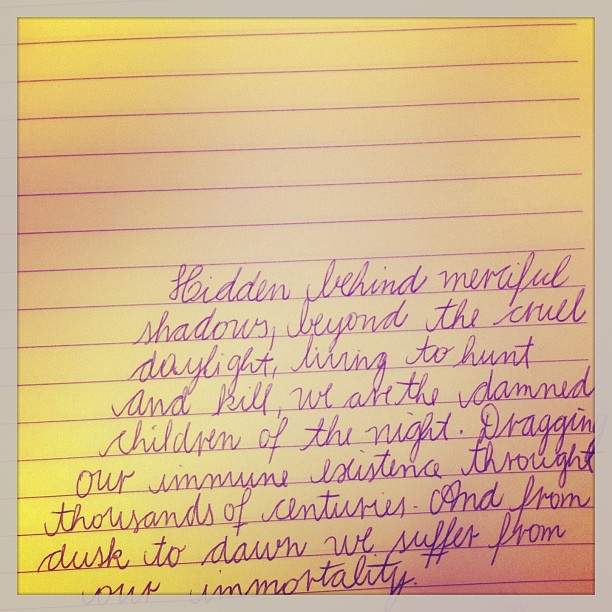 Hidden behind merciful
shadows, beyond the cruel
daylight, living to hunt
and kill, we are the damned
children of the night. Dragging
our immune existence throught
thousands of centuries. And from
dusk to dawn we suffer from
our immortality."